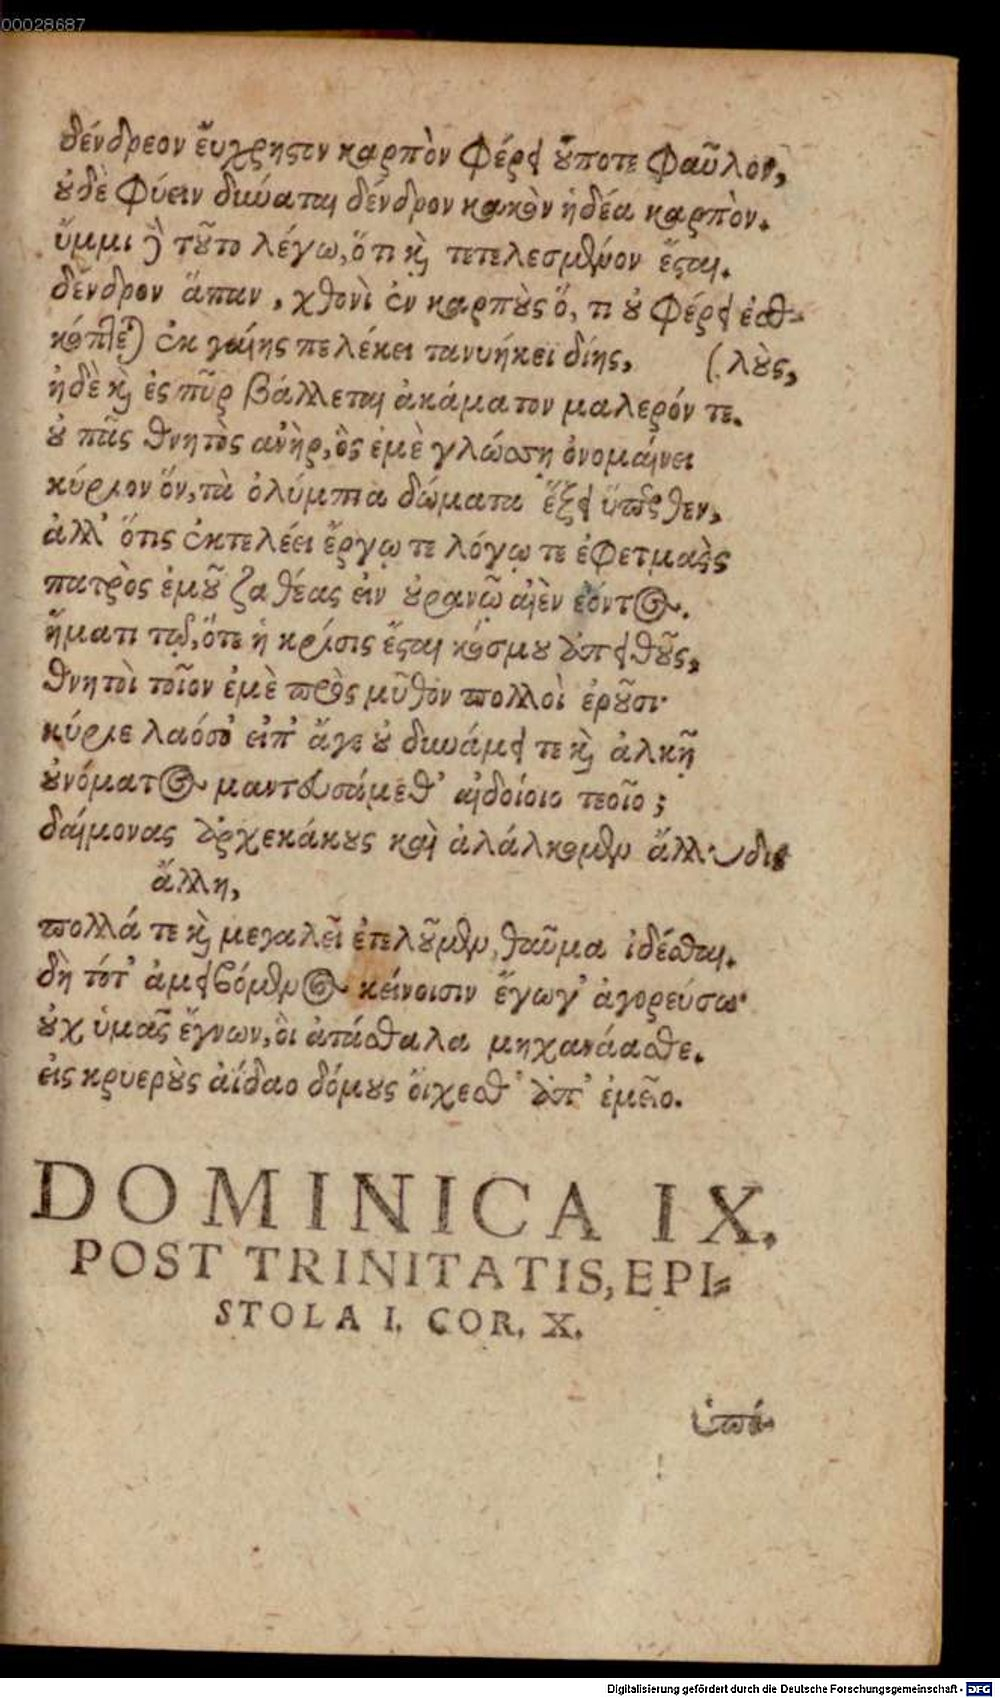 00028687
δένδρεον εὔχρηστιν καρπὸν φέρει οὔποτε φαῦλον,
οὐδὲ φύειν δύναται δένδρον κακὸν ἡδέα καρπὸν.
ὔμμι δὲ τοῦτο λέγω, ὅτι καὶ τετελεσμένον ἔσται.
δένδρον ἅπαν, χθονὶ ἐν καρποὺς ὅ, τι οὐ φέρει ἐσθ-
κόπτεται ἐκ γαίης πελέκει τανυήκεϊ δίης, (λοὺς,
ἠδὲ καὶ ἐς πῦρ βάλλεται ἀκάματον μαλερόν τε.
οὐ πᾶς θνητὸς ἀνὴρ, ὃς ἐμὲ γλώσση ὀνομαίνει
κύριον ὅν, τὰ ὀλύμπια δώματα ἕξει ὕπερθεν,
ἀλλ' ὅτις ἐκτελέει ἔργῳ τε λόγῳ τε ἐφετμαὲς
πατρὸς ἐμοῦ ζαθέας εἰν οὐρανῷ αἰὲν ἐόντος.
ἤματι τῷ, ὅτε ἡ κρίσις ἔσται κόσμου ἀπειθοῦς,
θνητοὶ τοῖον ἐμὲ πρὸς μῦθον πολλοὶ ἐροῦσι·
κύριε λαόσο' εἰπ' ἄγε οὐ δυνάμει τε καὶ ἀλκῇ
οὐνόματος μαντευσάμεθ' αἰδοίοιο τεοῖο;
δαίμονας ἀρχεκάκους καὶ ἀλάλκομεν ἄλλυδις
ἄλλη,
πολλά τε καὶ μεγαλεῖ ἐτελοῦμεν, θαῦμα ἰδέσθαι.
δὴ τότ' ἀμειβόμενος κείνοισιν ἔγωγ' ἀγορεύσω·
οὐχ ὑμᾶς ἔγνων, οἱ ἀτάσθαλα μηχανάασθε.
εἰς κρυεροὺς ἀΐδαο δόμους οἴχεσθ' ἀπ' ἐμεῖο.
DOMINICA IX.
POST TRINITATIS, EPI-
STOLA I. COR. X.
ὑπό-
Digitalisierung gefördert durch die Deutsche Forschungsgemeinschaft - DFG